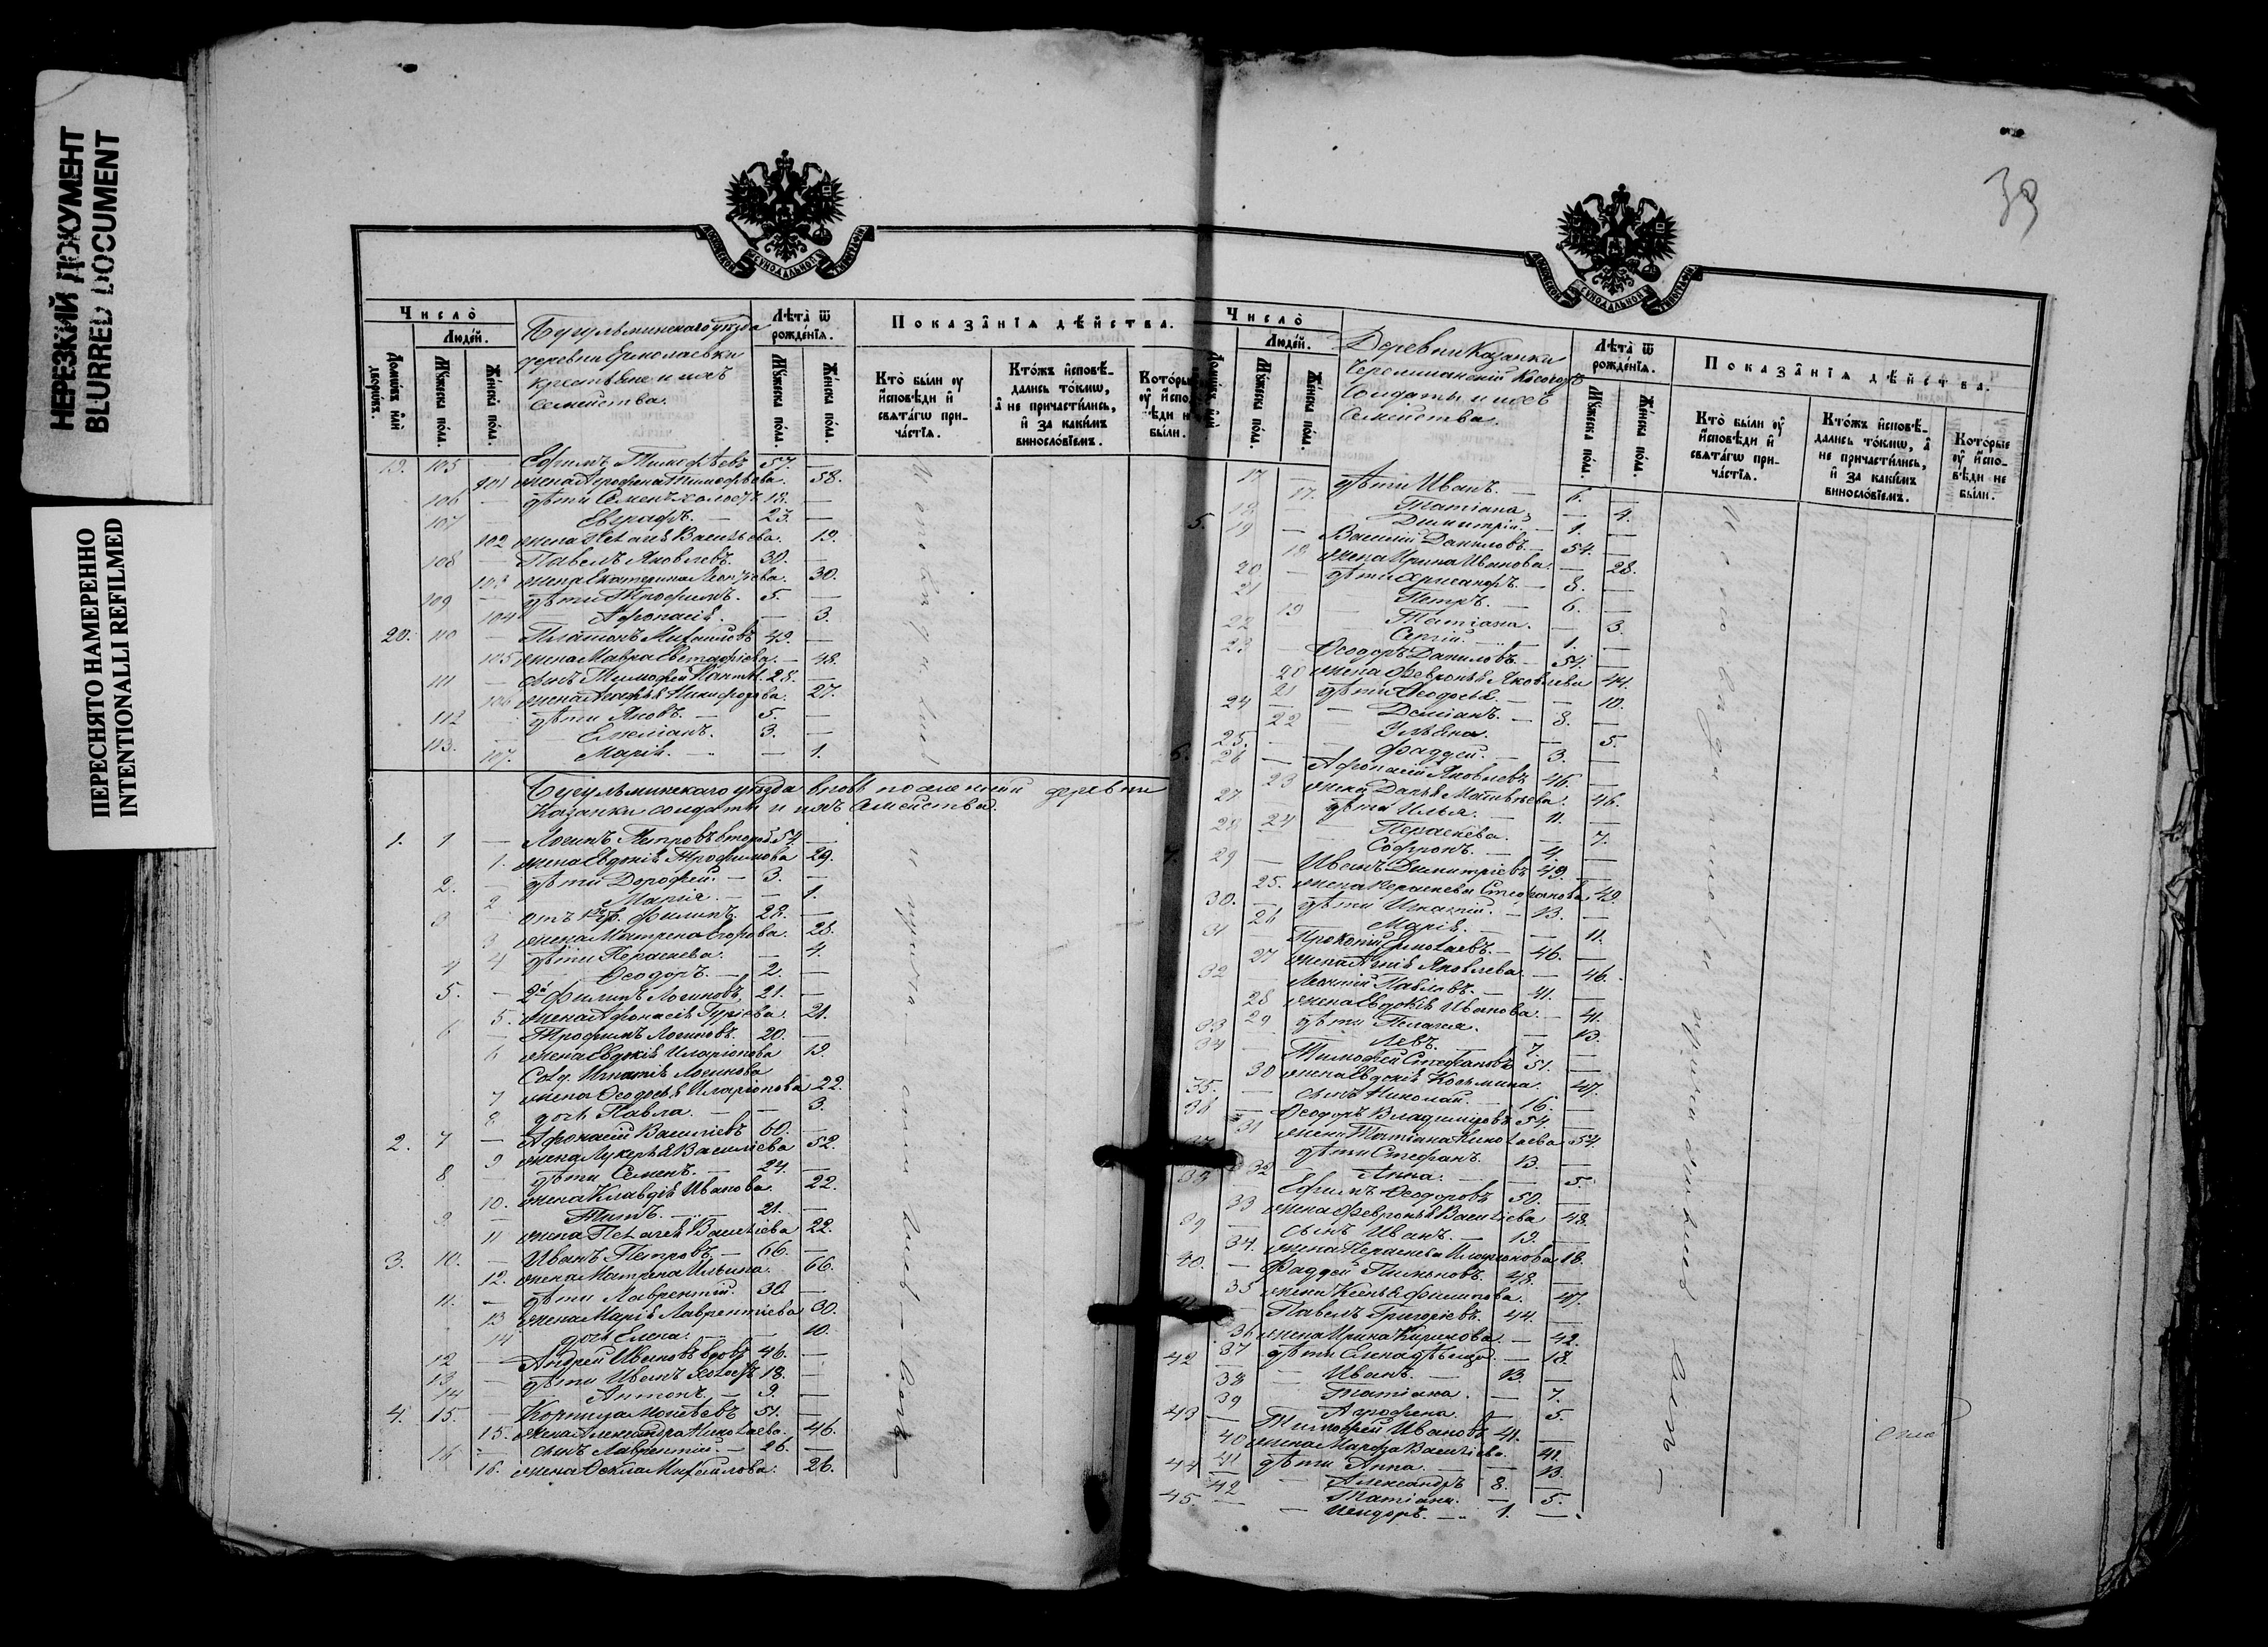 НЕРЕЗКИЙ ДОКУМЕНТ
BLURRED DOCUMENT
ПЕРЕСНЯТО НАМЕРЕННО
INTENTIONALLI REFILMED
39
Число̀
Людéй.
Домѡвъ и҆лѝ дворѡвъ.
Мꙋ́жеска по́ла.
Же́нска по́ла.
Бугульминскаго уѣзда
деревни Ермолаевки
крестьяне и ихъ
семейства.
Лѣта̀ ѿ рожде́нїѧ.
Мꙋ́жеска по́ла.
Же́нска по́ла.
Показа̑нїѧ дѣ́йства.
Кто̀ бы́ли ᲂу҆ и҆сповѣ́ди и҆ свѧта́гѡ прича́стїѧ.
Кто́жъ и҆сповѣ́дались то́кмѡ, а҆ не причасти́лись, и҆ за каки́мъ винослóвїемъ.
Кото́рые ᲂу҆ и҆сповѣ́ди не бы́ли.
19. 105 — Ефимъ Тимофѣевъ 57. —
101 жена Агрофена Тимофѣева. 58.
106 — дѣти Семенъ холостъ 18. —
107 — Евграфъ. — 23. —
102 жена Пелагея Васильева. 19.
108 — Павелъ Яковлевъ. 30. —
103 жена Екатерина 30.
109 — дѣти Трофимъ. 5. —
104 Афонасія. — 3.
20. 110 — Платонъ Михайловъ 49. —
105 жена Мавра Евстафіева. — 48.
111 — сынъ Тимофей 28. —
106 жена Агафья Никифорова. 27.
112 дѣти Яковъ. — 5. —
113. Емеліанъ. 3. —
107. Марія. — 1.
Бугульминскаго уѣзда вновь поселенной деревни
Казанки солдаты и ихъ семейства
1. 1 — Логинъ Петровъ второб. 54. —
1. жена Евдокія Трофимова 29.
2. — дѣти Дорофей. — 3. —
2 Марія. — — 1.
3 отъ 1го бр. Филипъ. 28. —
3 жена Матрена Егорова. 28.
4 дѣти Пераскева. — 4.
4 — Ѳеодоръ. — 2. —
5. — 2й Филипъ Логиновъ. 21. —
5. жена Афонасія Гуріева. 21.
6 — Трофимъ Логиновъ. 20. —
6 жена Евдокія Иларіонова 19.
Солд. Игнатія Логинова
7 жена Ѳеодосья Иларіонова 22.
8 дочь Павла. — — 3.
2. 7 — Афонасій Васильевъ 60. —
9 жена Лукерья Василіева 52.
8 — дѣти Семенъ. — 24. —
10. жена Клавдія Иванова. 22.
9. — Титъ. — 21. —
11 жена Пелагея Василіева 22.
3. 10. — Иванъ Петровъ. — 66. —
12. жена Матрена Ильина. 66.
11. — дѣти Лаврентій. 30. —
13 жена Марія Лаврентіева 30.
14 дочь Елена. — — 10.
12 — Андрей Ивановъ вдовъ 46. —
13 — дѣти Иванъ холостъ 18. —
14 — Антонъ. — 9. —
4. 15. — Корнила Моисѣевъ 51. —
15. жена Александра Николаева. 46.
16 — сынъ Лаврентій. — 26. —
16. жена Ѳекла Михайлова. 26.
Число̀
Людéй.
Мꙋ́жеска по́ла.
Же́нска по́ла.
Деревни Казанки
Солдаты и ихъ
семейства.
Лѣта̀ ѿ рожде́нїѧ.
Мꙋ́жеска по́ла.
Же́нска по́ла.
Показа̑нїѧ дѣ́йства.
Кто̀ бы́ли ᲂу҆ и҆сповѣ́ди и҆ свѧта́гѡ прича́стїѧ.
Кто́жъ и҆сповѣ́дались то́кмѡ, а҆ не причасти́лись, и҆ за каки́мъ винослóвїемъ.
Кото́рые ᲂу҆ и҆сповѣ́ди не бы́ли.
17 — дѣти Иванъ. — 6. —
17. Татіана. — 4.
18 Димитрій. — 1. —
5. 19 — Василій Даниловъ. — 54. —
18 жена Ирина Иванова. — 28.
20 — дѣти Хрисанфъ. — 8. —
21 Петръ. — 6. —
19 Татіана. — 3.
22 Сергій. — 1. —
23 — Ѳеодоръ Даниловъ. — 54. —
20 жена Февронья Яковлева 44.
21 дѣти Ѳеодосья — 10.
24 — Деміанъ. — 8. —
22 Ульяна. — 5.
25. — Фаддей. — 3. —
6. 26 — Афонасій Яковлевъ 46. —
23 жена Дарья Матвѣева. 46.
27 дѣти Илья. — 11. —
24 Пераскева. — 7.
28 — Софронъ. — 4. —
7. 29 — Иванъ Димитріевъ 49. —
25. жена Пераскева Стефанова 49.
30. — дѣти Игнатій. — 13. —
26 Марія. — — 11.
31 Прокопій Ермолаевъ. — 46. —
27 жена Агнія Яковлева. — 46.
32 Леонтій Павловъ. — 41. —
28 жена Евдокія Иванова. — 41.
29 дѣти Пелагея. — 13.
33 Левъ. — 7. —
34 — Тимофей Стефановъ 51. —
30 жена Евдокія Козьмина. 47.
35. — сынъ Николай. — 16. —
36 — Ѳеодоръ Владиміровъ 54. —
31 жена Татіана Николаева 54.
дѣти Стефанъ. 13. —
32 Анна. — — 5.
38 Ефимъ Ѳеодоровъ 50. —
33 жена Февронья Василіева 48.
39 — сынъ Иванъ. — 19. —
34. жена Пераскева Иларіонова 18.
40. — Фаддей Пименовъ. 48. —
35 жена Ксенья Филипова. 47.
— Павелъ Григоріевъ. 44. —
36 жена Ирина Кирилова. — 42.
37 дѣти Елена дѣвица. — 18.
42 — Иванъ. — 13. —
38 Татіана. — 7.
39 Агрофена. — 5.
43 — Тимофей Ивановъ 41. —
40 жена Марфа Василіева. 41.
41 дѣти Анна. — — 13.
44 — Александръ 8. —
42 Татіана. — 5.
45. — Исидоръ. — 1. —